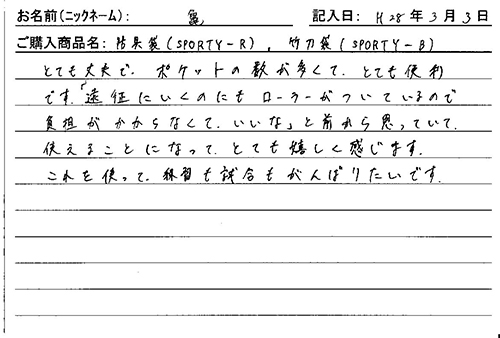 お名前(ニックネーム): 亀 記入日: H28年3月3日
ご購入商品名: 防具袋(SPORTY-R), 竹刀袋(SPORTY-B)
とても丈夫で、ポケットの数が多くて、とても便利
です。「遠征にいくのにもローラーがついているので
負担がかからなくて、いいな」と前から思っていて、
使えることになって、とても嬉しく感じます。
これを使って、練習も試合もがんばりたいです。